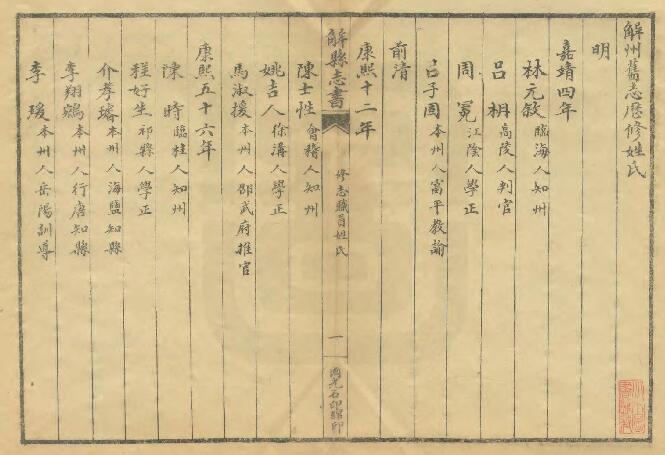 解州舊志歷修姓氏
明
嘉靖四年
林元敘臨海人知州
呂柟高陵人判官
周冕江陰人學正
呂子固本州人富平教諭
前清
康熙十二年
解縣志書
修志職員姓氏
一
石印館印
陳士性會稽人知州
姚吉人徐溝人學正
馬淑援本州人邵武府推官
康熙五十六年
陳時臨桂人知州
程好生祁縣人學正
介孝璿本州人海鹽知縣
李翔鵷本州人行唐知縣
李瑗本州人岳陽訓導